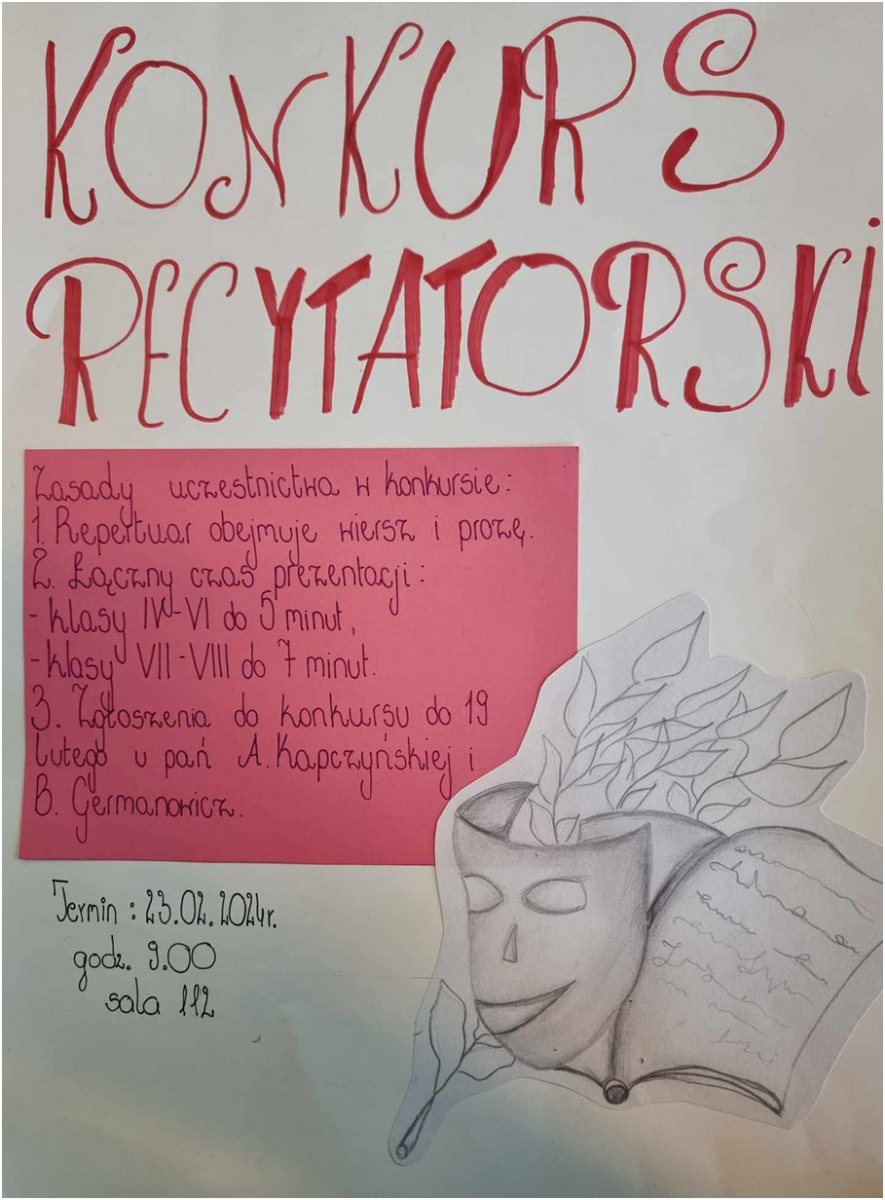 KONKURS
RECYTATORSKI
Zasady uczestnictwa w konkursie:
1. Repertuar obejmuje wiersz i prozę.
2. Łączny czas prezentacji:
- klasy IV-VI do 5 minut,
- klasy VII-VIII do 7 minut.
3. Zgłoszenia do konkursu do 19
lutego u pań A. Kapczyńskiej i
B. Germanowicz.
Termin: 23.02.2024r.
godz. 9.00
sala 112